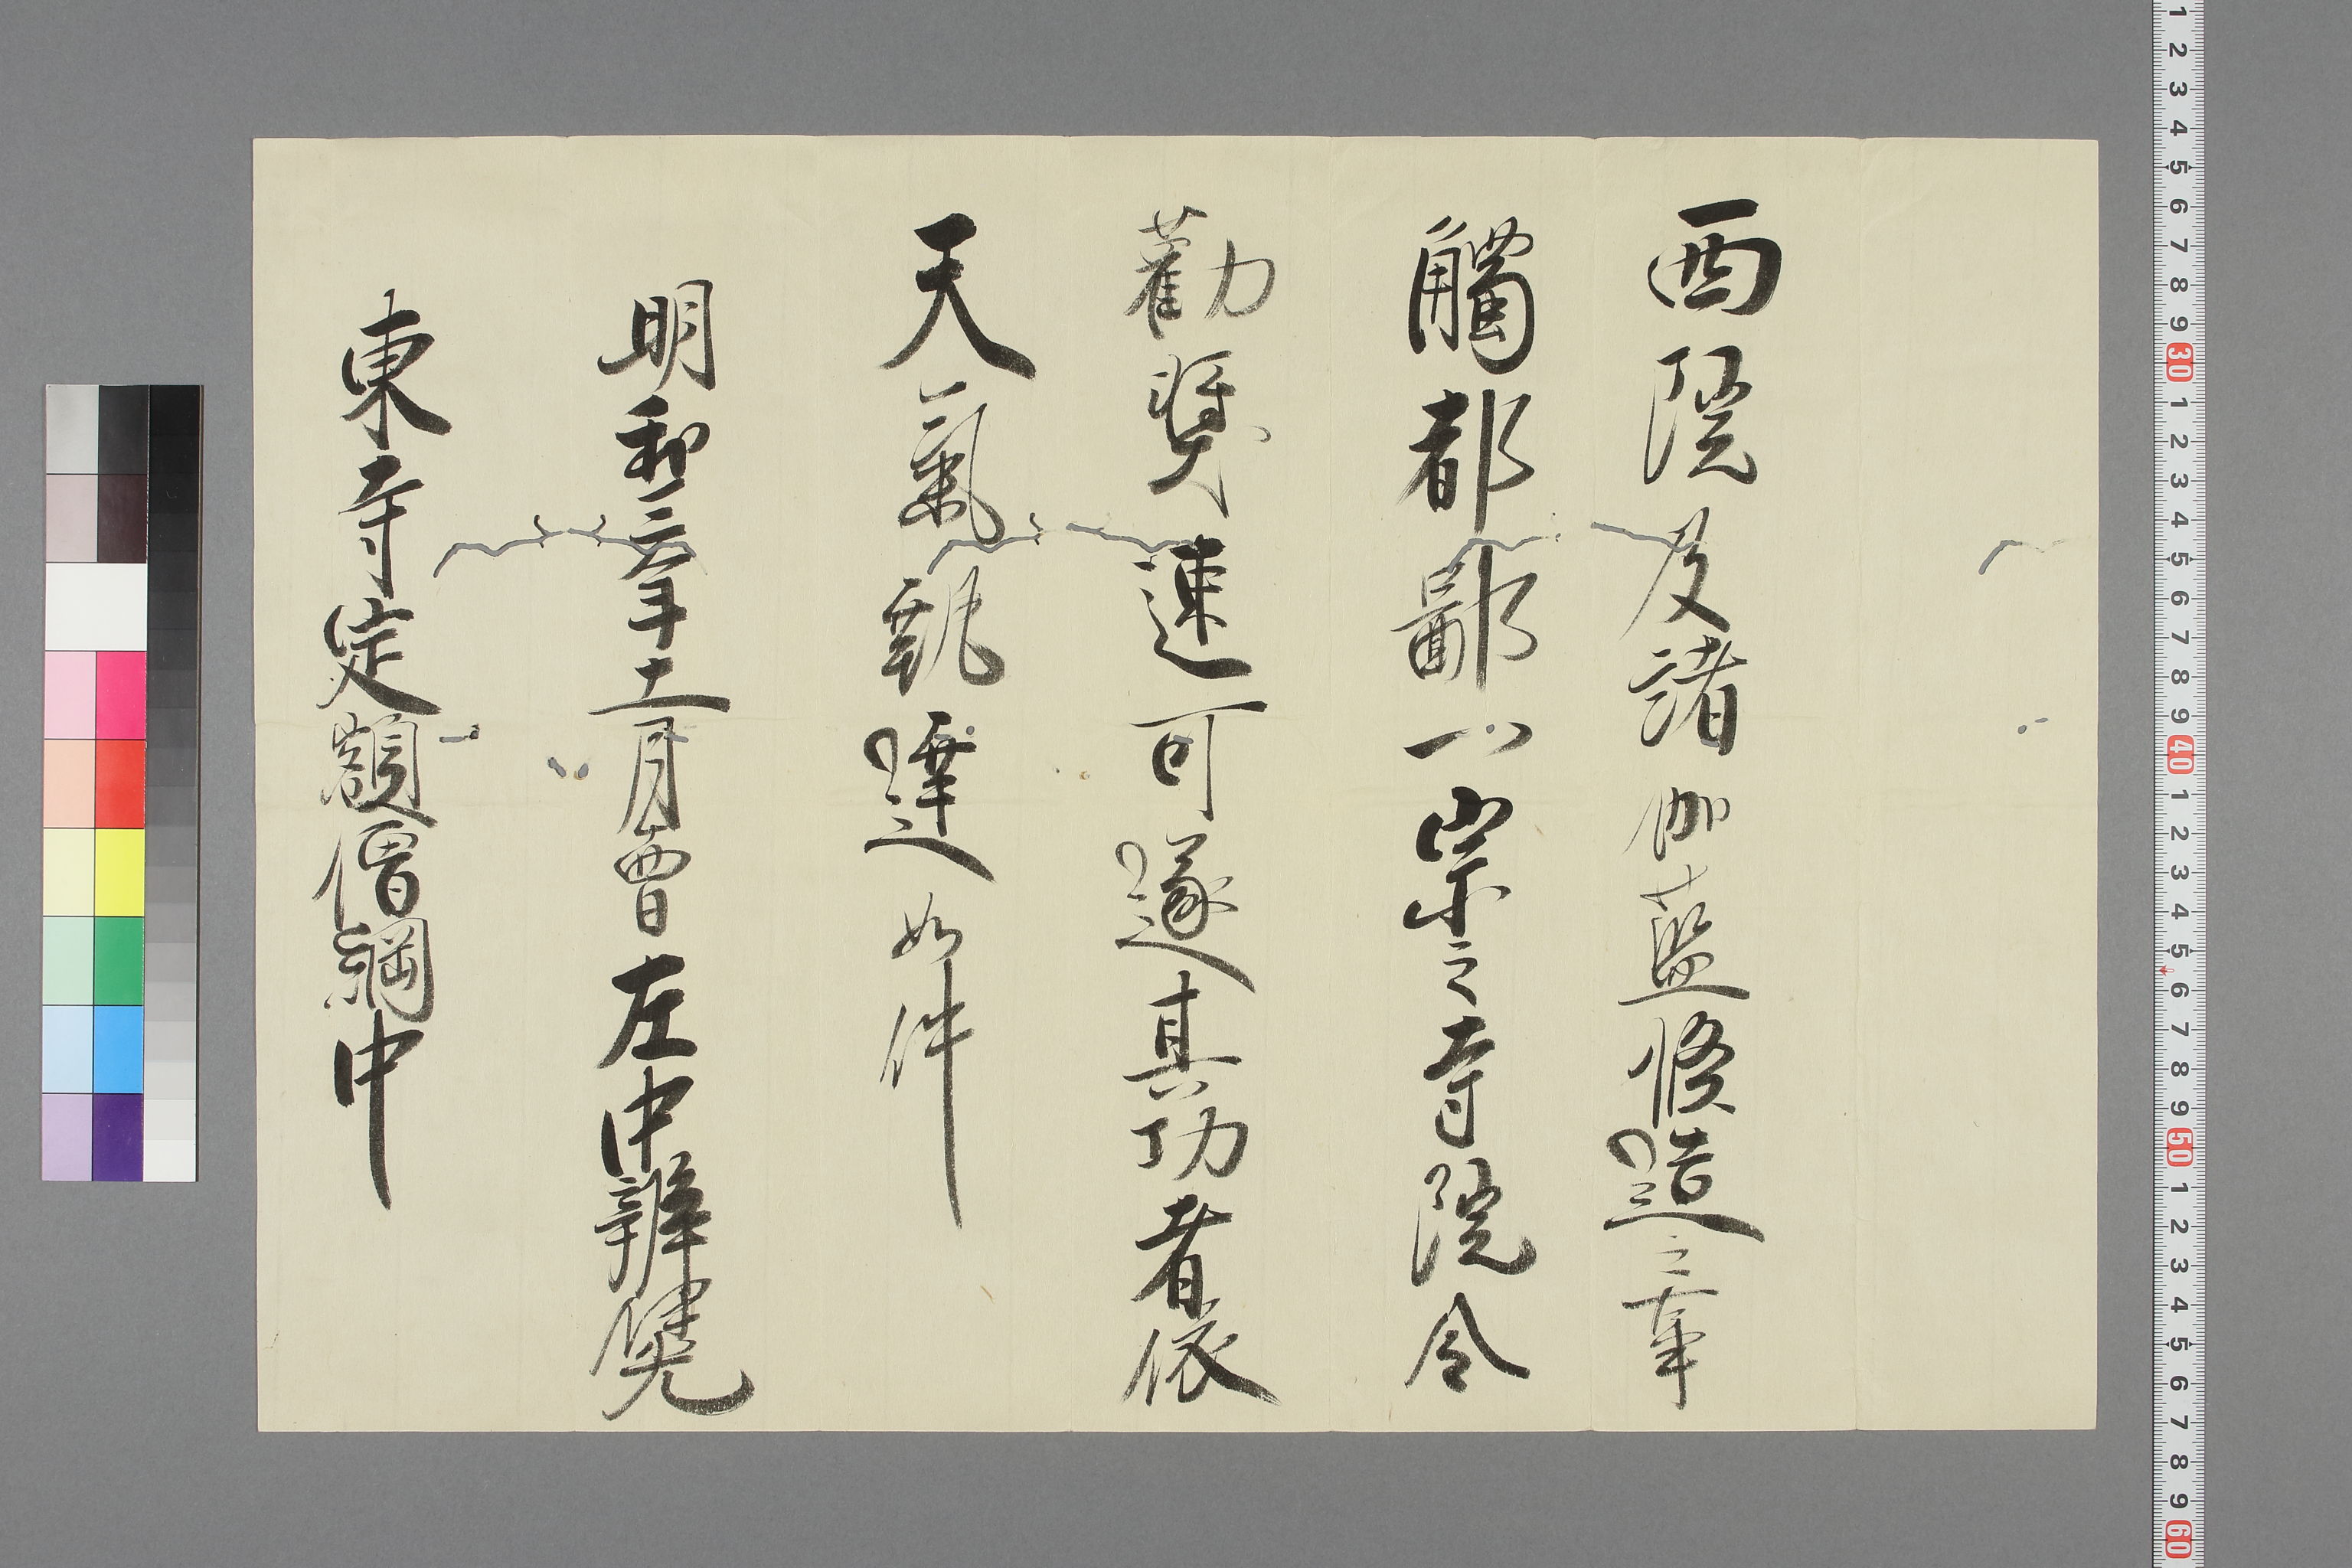 西院及諸伽藍修造之事
觸都鄙宗之寺院令
勸奨速可遂其功者依
天氣執達如件
明和三年十一月四日 左中辨
東寺定額僧綱中